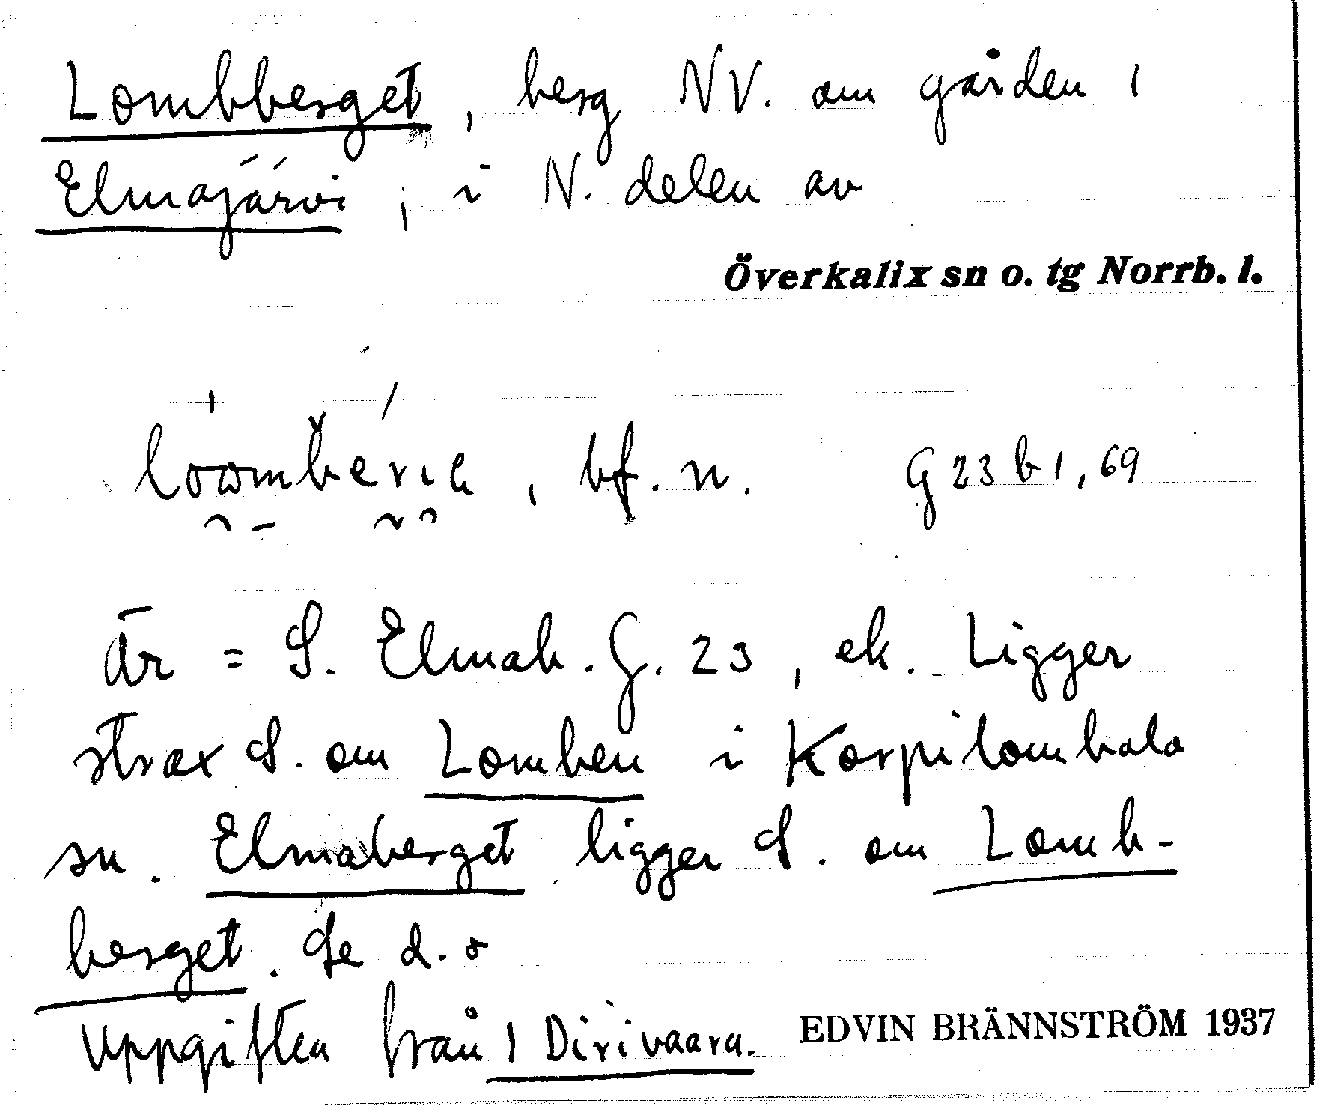 Lombberget, berg NV. om gården 1
Elmajärvi, i N. delen av
Överkalix sn o. tg Norrb. l.
bf. n. G 23 b 1, 69
är = S. Elmab. G. 23, ek. Ligger
strax S. om Lomben i Korpilombolo
sn. Elmaberget ligger S. om Lomb-
berget. Se d. o
Uppgiften från 1 Dirivaara.
EDVIN BRÄNNSTRÖM 1937